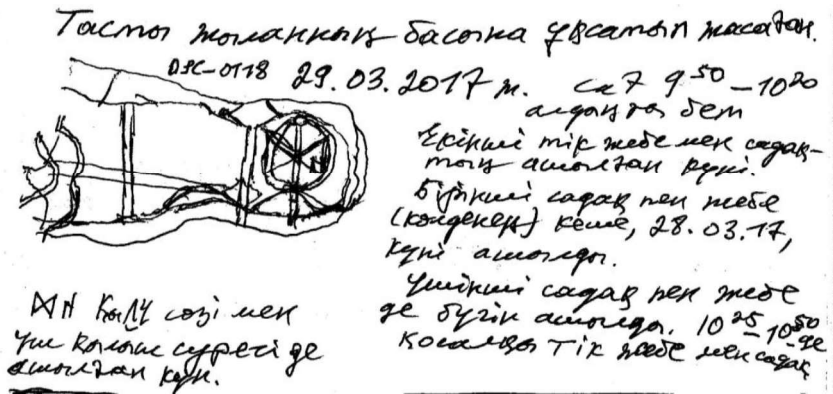 Тасты жыланның басына ұқсатып жасаған.
DSC-0118 29.03.2017 ж. са7 9⁵⁰ – 10²⁰
алдыңғы бет
Екінші тік жебе мен садақ-
тың ашылған күні.
Бірінші садақ пен жебе
(көлденең) кеше, 28.03.17,
күні ашылды.
Үшінші садақ пен жебе
де бүгін ашылды. 10²⁵ – 10⁵⁰ де
қосалқы тік жебе мен садақ
сөзі мен
үш қылыш суреті де
ашылған күн.